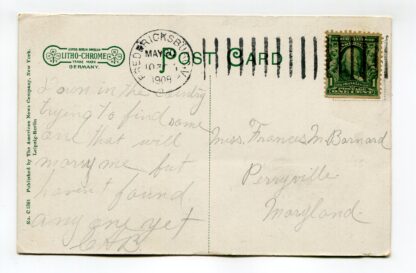 LITHO-CHROME
TRADE MARK
GERMANY.
POST CARD
FREDERICKSBURG, VA
MAY
1908
No. C 1591 Published by The American News Company, New York.
Leipzig-Berlin
Down in the Country
trying to find some
one that will
marry me but
haven't found
any one yet
Miss. Frances M. Barnard
Perryville
Maryland.